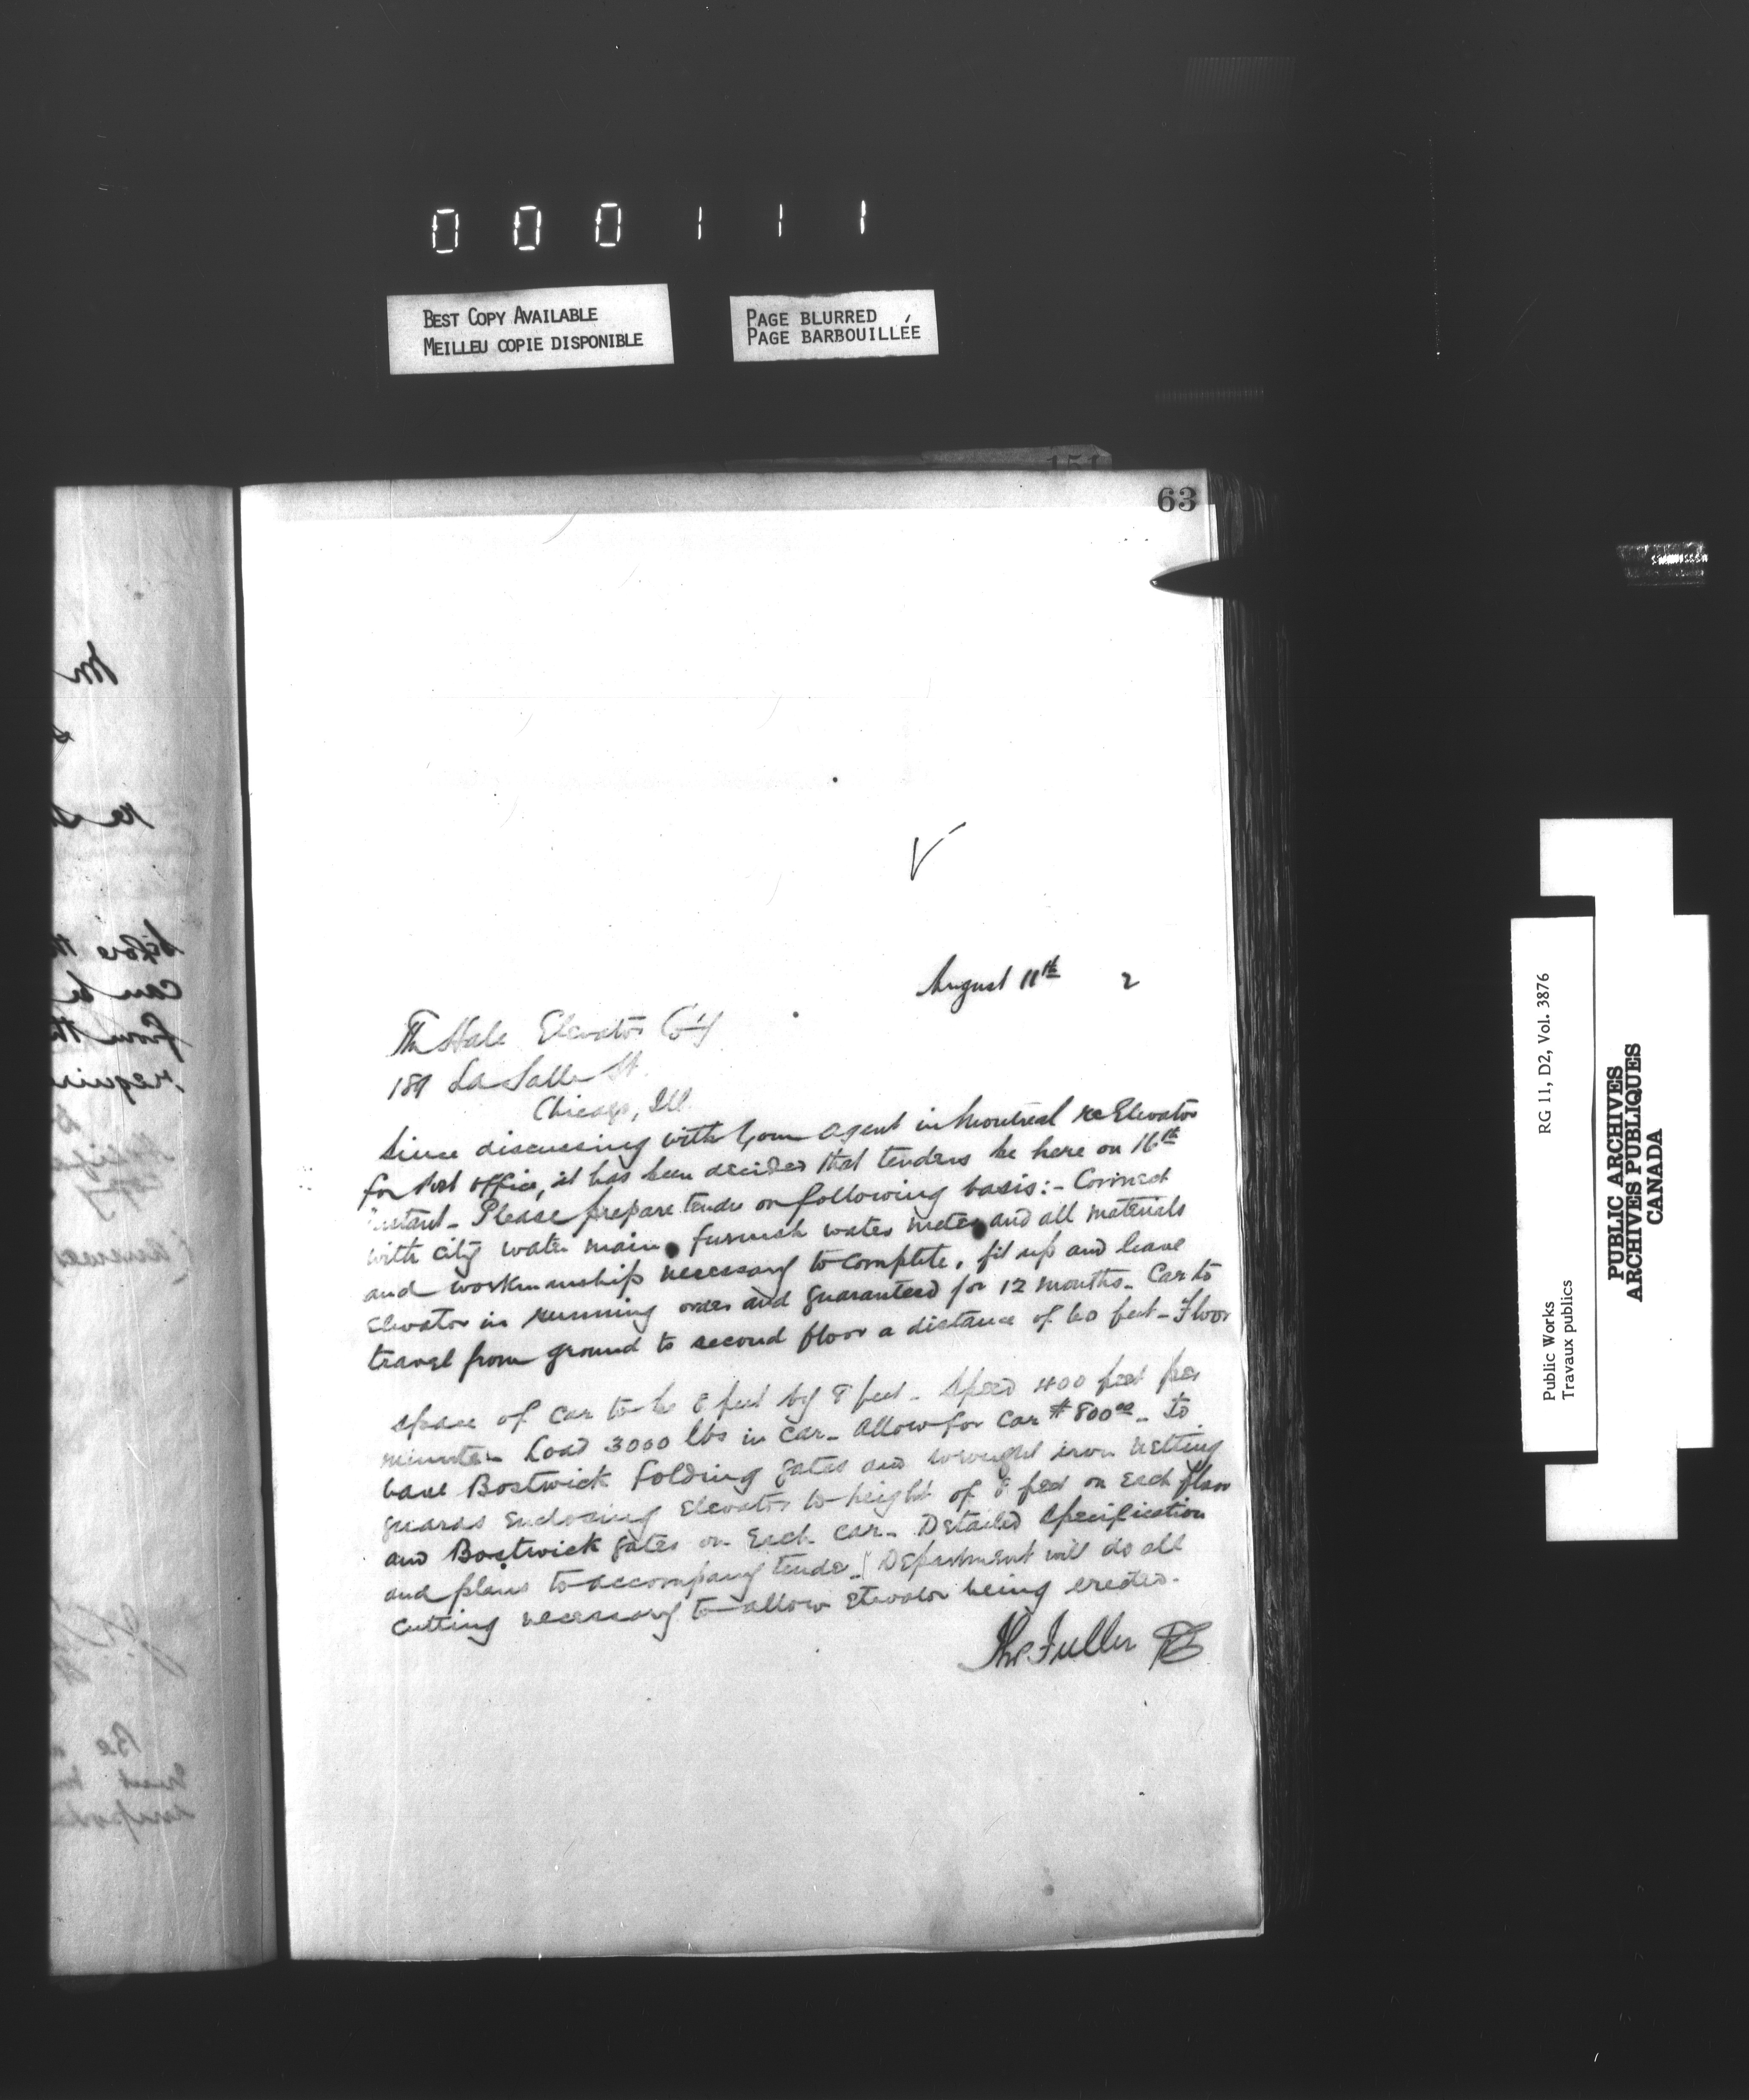 000111
BEST COPY AVAILABLE
MEILLEU COPIE DISPONIBLE
PAGE BLURRED
PAGE BARBOUILLÉE
151
63
August 11th 2
The Hale Elevator Co'y
189 La Salle St.
Chicago, Ill.
Since discussing with your agent in Montreal re Elevator
for Post Office, it has been decided that tenders be here on 16th
instant - Please prepare tender on following basis:- Connect
with city water main, furnish water meter and all materials
and workmanship necessary to complete, fit up and leave
elevator in running order and guaranteed for 12 months - Car to
travel from ground to second floor a distance of 60 feet - Floor
space of car to be 8 feet by 8 feet - Speed 400 feet per
minute - Load 3000 lbs in car - Allow for car $800.00 - To
have Bostwick folding gates and wrought iron netting
guards enclosing elevator to height of 8 feet on each floor
and Bostwick gates on each car - Detailed specification
and plans to accompany tender - Department will do all
cutting necessary to allow elevator being erected.
Thos Fuller
before th
can be
from th
requir
RG 11, D2, Vol. 3876
Public Works
Travaux publics
PUBLIC ARCHIVES
ARCHIVES PUBLIQUES
CANADA